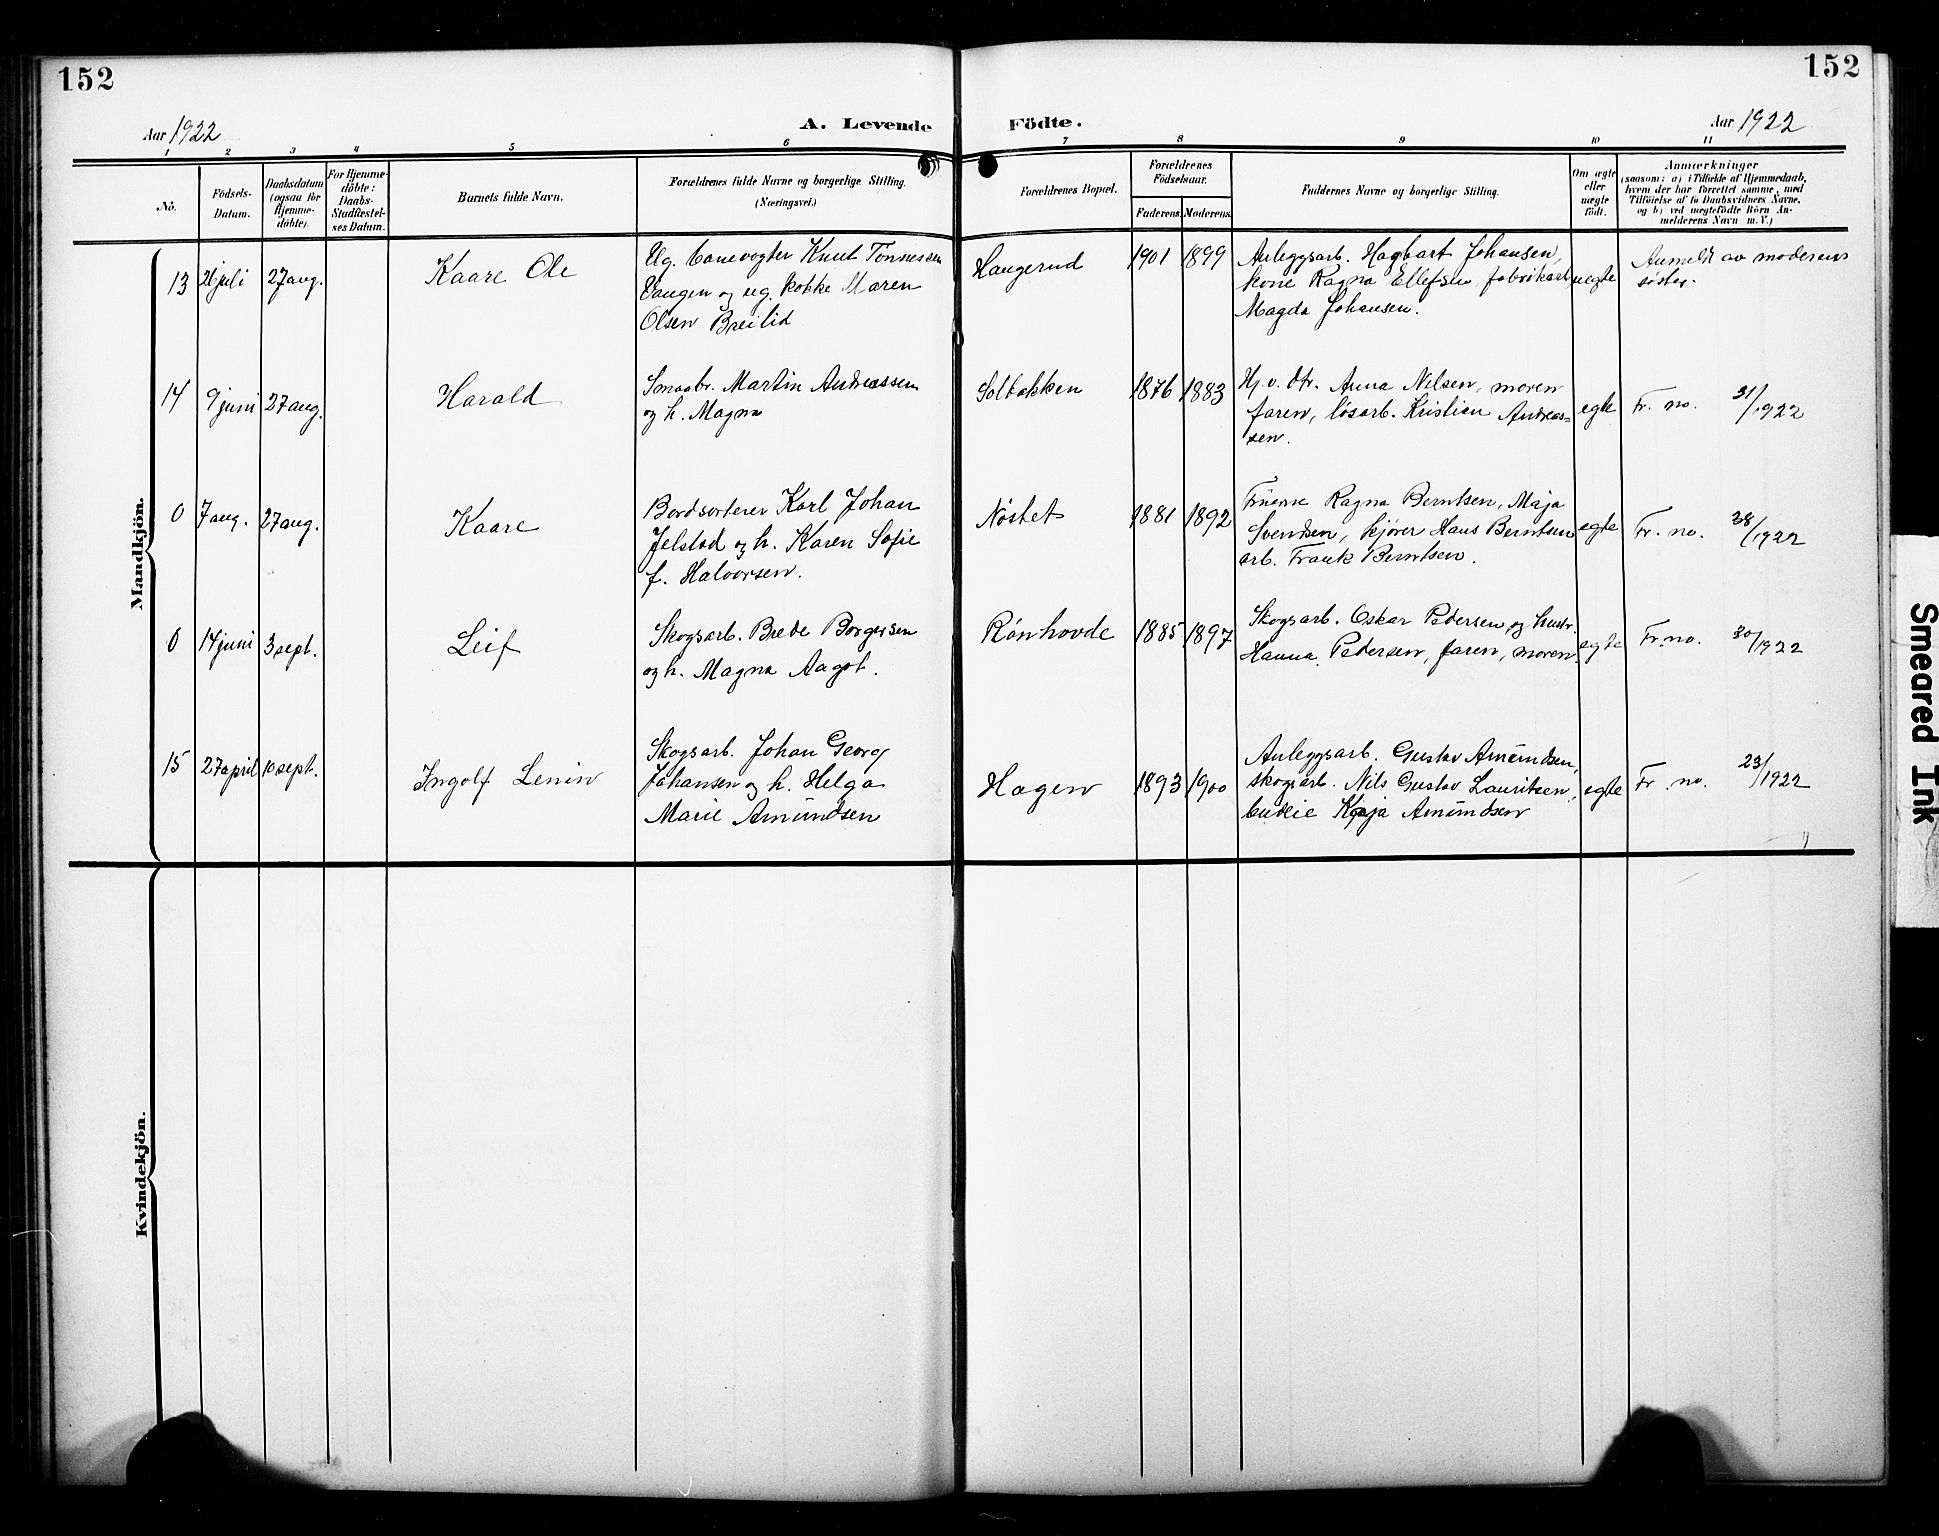 152
152
Aar 1922
A. Levende Födte.
Aar 1922
1 2 3 4 5 6 7 8 9 10 11
No.
Födsels-Datum.
Daabsdatum (ogsaa for Hjemme-döbte).
For Hjemme-döbte: Daabs-Stadfæstel-ses Datum.
Barnets fulde Navn.
Forældrenes fulde Navne og borgerlige Stilling.
(Næringsvei.)
Forældrenes Bopæl.
Forældrenes Födselsaar.
Faderens. Moderens.
Faddernes Navne og borgerlige Stilling.
Om ægte eller uægte födt.
Anmærkninger
(saasom: a) i Tilfælde af Hjemmedaab,
hvem der har forrettet samme, med
Tilföielse af to Daabsvidners Navne,
og b) ved uægtefödte Börn An-
melderens Navn m. V.)
Mandkjön.
13 21 juli 27 aug. Kaare Ole
Ug. banevogter Knut Tönnessen
Vaugen og ug. kokke Maren
Olsen Breilid
Haugerud 1901 1899
Anleggsarb. Hagbart Johansen,
kone Ragna Ellefsen, fabrikarb.
Magda Johansen.
uegte
Anmeldt av moderens
søster.
14 9 juni 27 aug. Harald
Smaabr. Martin Andreassen
og h. Magna
Solbakken 1876 1883
Hj. v. dtr. Anna Nilsen, moren
faren, løsarb. Kristian Andreas-
sen.
egte Fr. no. 31/1922
0 7 aug. 27 aug. Kaare
Bordsorterer Karl Johan
Jelstad og h. Karen Sofie
f. Halvorsen.
Nøstet 1881 1892
Fruerne Ragna Berntsen, Maja
Svendsen, kjører Hans Berntsen
arb. Frank Berntsen.
egte Fr. no. 38/1922
0 14 juni 3 sept. Leif
Skogsarb. Brede Borgersen
og h. Magna Aagot.
Rönhovde 1885 1897
Skogsarb. Oskar Pedersen og hustr.
Hanna Pedersen, faren, moren
egte Fr. no. 30/1922
15 27 april 10 sept. Ingolf Lenin
Skogsarb. Johan Georg
Johansen og h. Helga
Marie Amundsen
Hagen 1893 1900
Anleggsarb. Gustav Amundsen,
skogsarb. Nils Gustav Lauritsen,
budeie Kaja Amundsen
egte Fr. no. 23/1922
Kvindekjön.
Smeared Ink